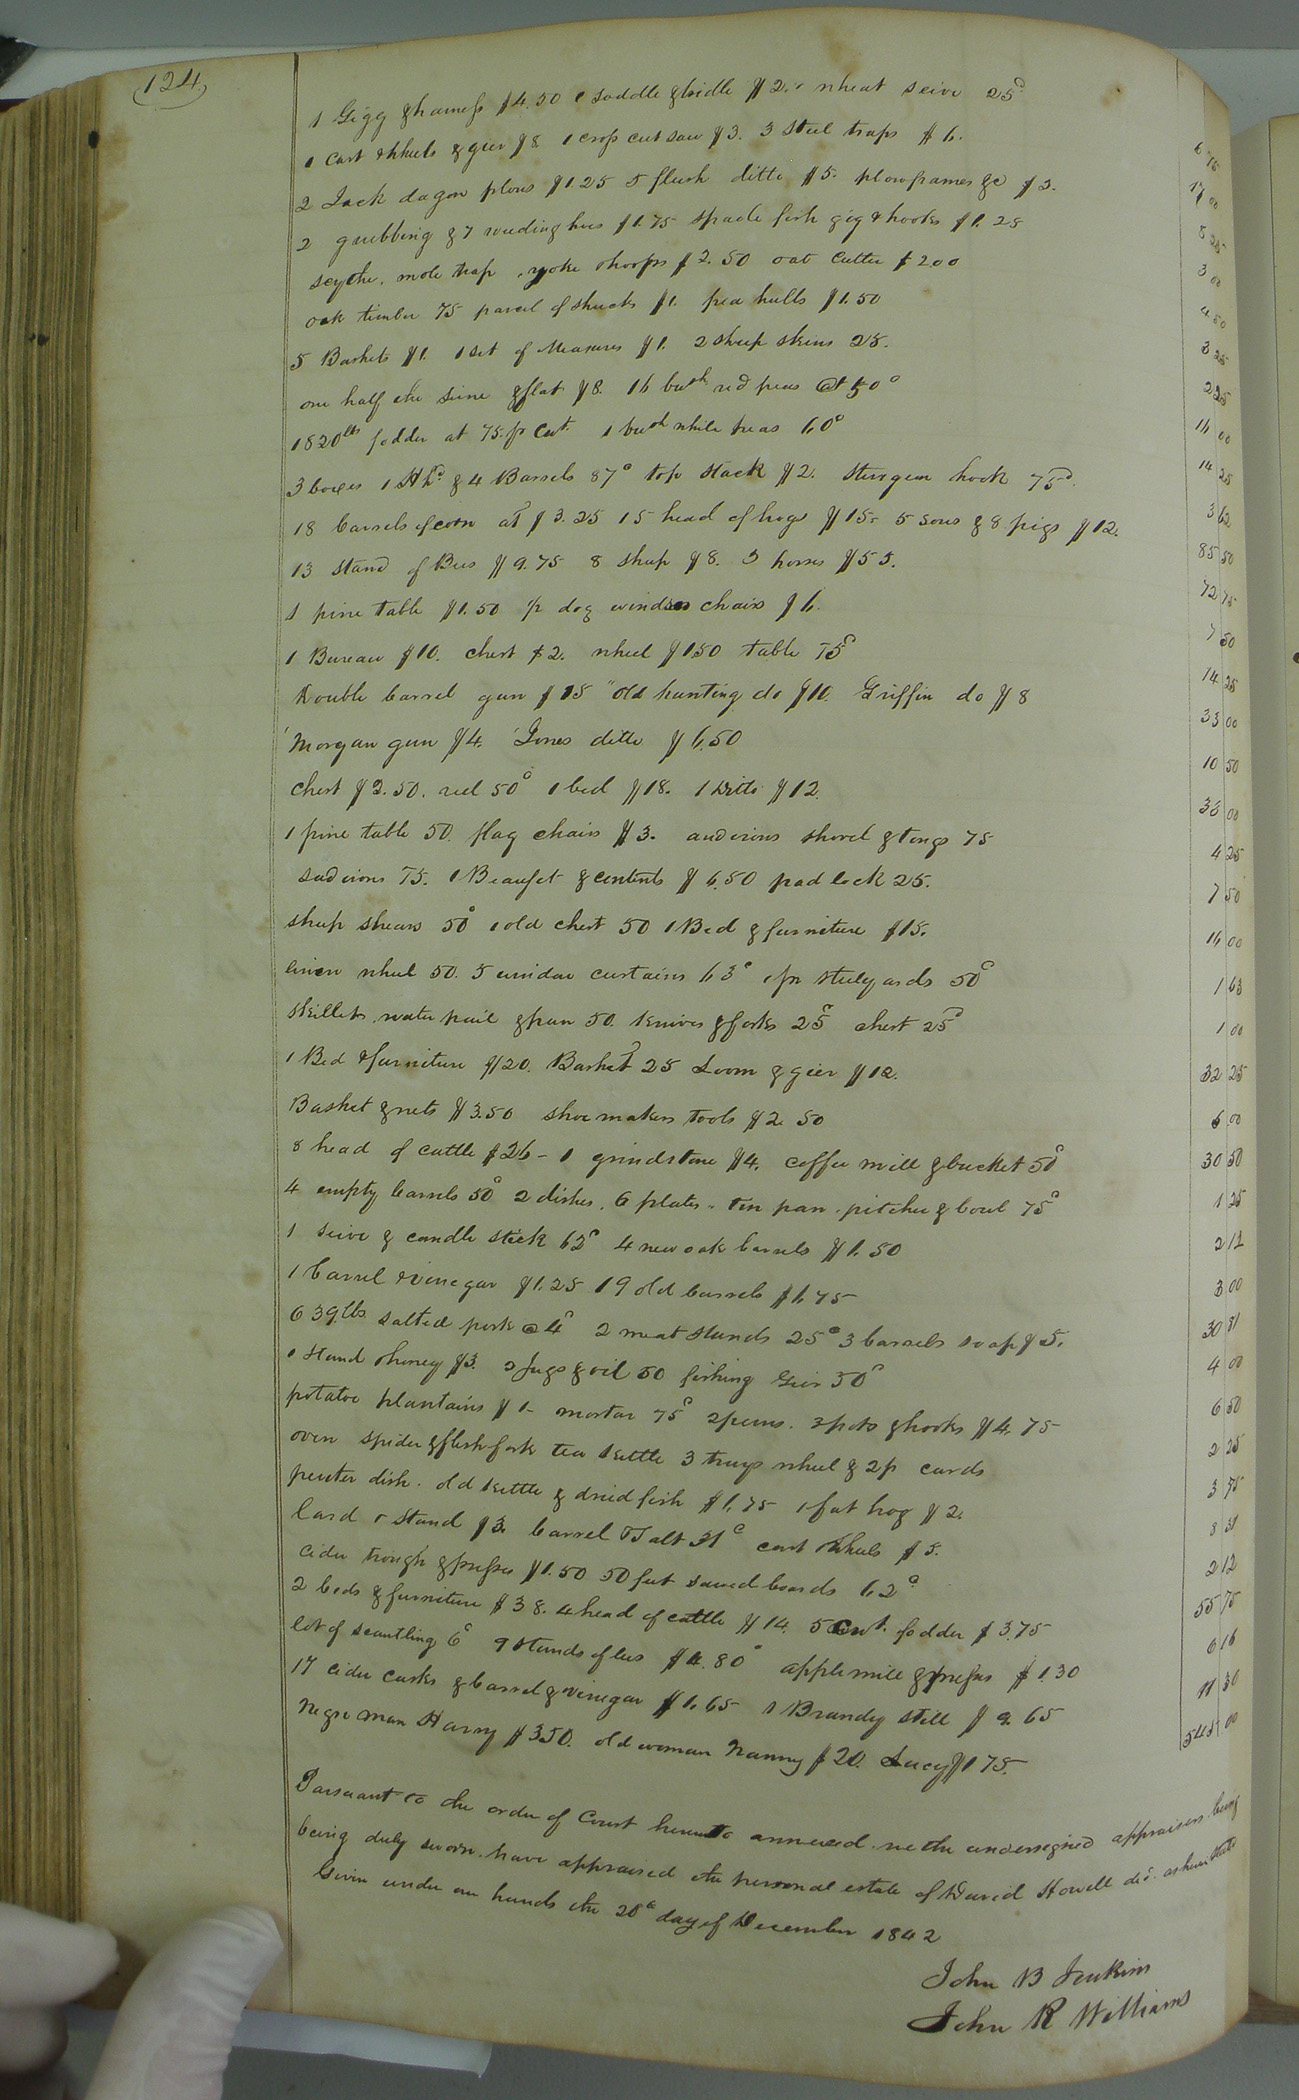 124
1 Gigg & harness $4.50 1 saddle & bridle $2. 1 wheat seive 25c 6 75
1 cart & wheels & geer $8 1 cross cut saw $3. 3 steel traps $6. 17 00
2 Jack dagon plows $1.25 5 flush ditto $5. plowframes &c $3. 8 25
2 grubbing & 7 weeding hoes $1.75 spade fish gig & hooks $1.25 3 00
scythe, mole trap, yoke & hoops $2.50 oat cutter $200 4 50
oak timber 75 parcel of shucks $1. pea hulls $1.50 3 25
5 Baskets $1. 1 set of Measures $1. 2 sheep skins 25. 2 25
one half the seine & flat $8. 16 bush red peas @ 50c 16 00
1820 lbs fodder at 75. pr Cwt. 1 bush white peas 60c 14 25
3 boxes 1 Hhd & 4 Barrels 87c top stack $2. sturgeon hook 75c 3 62
18 barrels of corn at $3.25 15 head of hogs $15- 5 sows & 8 pigs $12. 85 50
13 stand of Bees $9.75 8 sheep $8. 3 horses $55. 72 75
1 pine table $1.50 ½ doz windsor chairs $6. 7 50
1 Bureau $10. chest $2. wheel $1.50 table 75c 14 25
Double barrel gun $15 " old hunting do $10. Griffin do $8 33 00
Morgan gun $4. Jones ditto $6.50 10 50
chest $2.50. reel 50c 1 bed $18. 1 ditto $12. 33 00
1 pine table 50. flag chairs $3. andirons shovel & tongs 75 4 25
sad irons 75. 1 Beaufet & contents $6.50 pad lock 25. 7 50
sheep shears 50c 1 old chest 50 1 Bed & furniture $15. 16 00
linen wheel 50. 5 window curtains 63c 1 pr steelyards 50c 1 63
skillet, water pail & pan 50. knives & forks 25c chest 25c 1 00
1 Bed & furniture $20. Basket 25 Loom & gier $12. 32 25
Basket & nets $3.50 shoemakers tools $2.50 6 00
8 head of cattle $26- 1 grindstone $4. coffee mill & bucket 50c 30 50
4 empty barrels 50c 2 dishes, 6 plates, tin pan, pitcher & bowl 75c 1 25
1 seive & candle stick 62c 4 new oak barrels $1.50 2 12
1 barrel & vinegar $1.25 19 old barrels $1.75 3 00
639 lbs salted pork @ 4c 2 meat stands 25c 3 barrels soap $5. 30 81
1 stand & honey $3. 2 jugs & oil 50 fishing Geer 50c 4 00
potatoe plantains $1- mortar 75c 2 pots & hooks $4.75 6 50
oven spider & flesh fork tea kettle 3 trays wheel & 2 p cards 2 25
pewter dish. old kettle & dried fish $1.75 1 fat hog $2. 3 75
lard & stand $3. barrel & salt 31c cart wheels $5. 8 31
cider trough & presses $1.50 50 feet sawed boards 62c 2 12
2 beds & furniture $38. 4 head of cattle $14. 5 Cwt. fodder $3.75 55 75
lot of scantling 6c 9 stands of bees $4.80 apple mill & presses $1.30 6 16
17 cider casks & barrel & vinegar $1.65 1 Brandy still $9.65 11 30
Negro man Harry $350. old woman Nanny $20. Lucy $175. 545 00
Pursuant to the order of Court hereunto annexed, we the undersigned appraisers being
being duly sworn, have appraised the personal estate of David Howell decd. as
Given under our hands the 28th day of December 1842
John B Jenkins
John R Williams